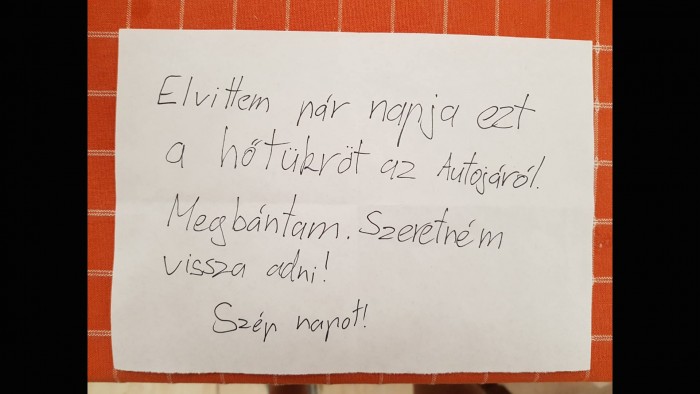 Elvittem pár napja ezt
a hőtükröt az Autojáról.
Megbántam. Szeretném
vissza adni!
Szép napot!